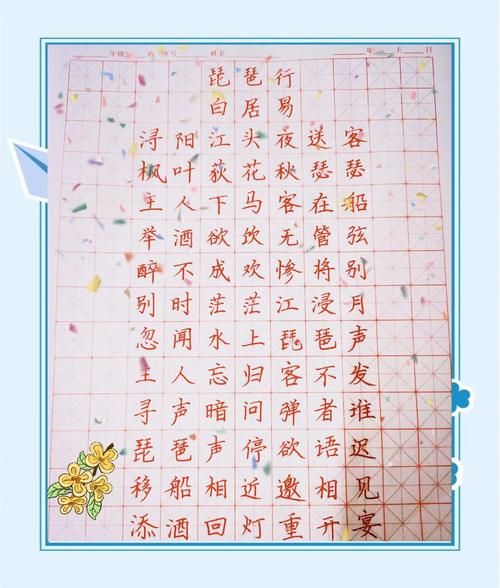 年级 班 座号 姓名 年 月 日
琵琶行
白居易
浔阳江头夜送客
枫叶荻花秋瑟瑟
主人下马客在船
举酒欲饮无管弦
醉不成欢惨将别
别时茫茫江浸月
忽闻水上琵琶声
主人忘归客不发
寻声暗问弹者谁
琵琶声停欲语迟
移船相近邀相见
添酒回灯重开宴